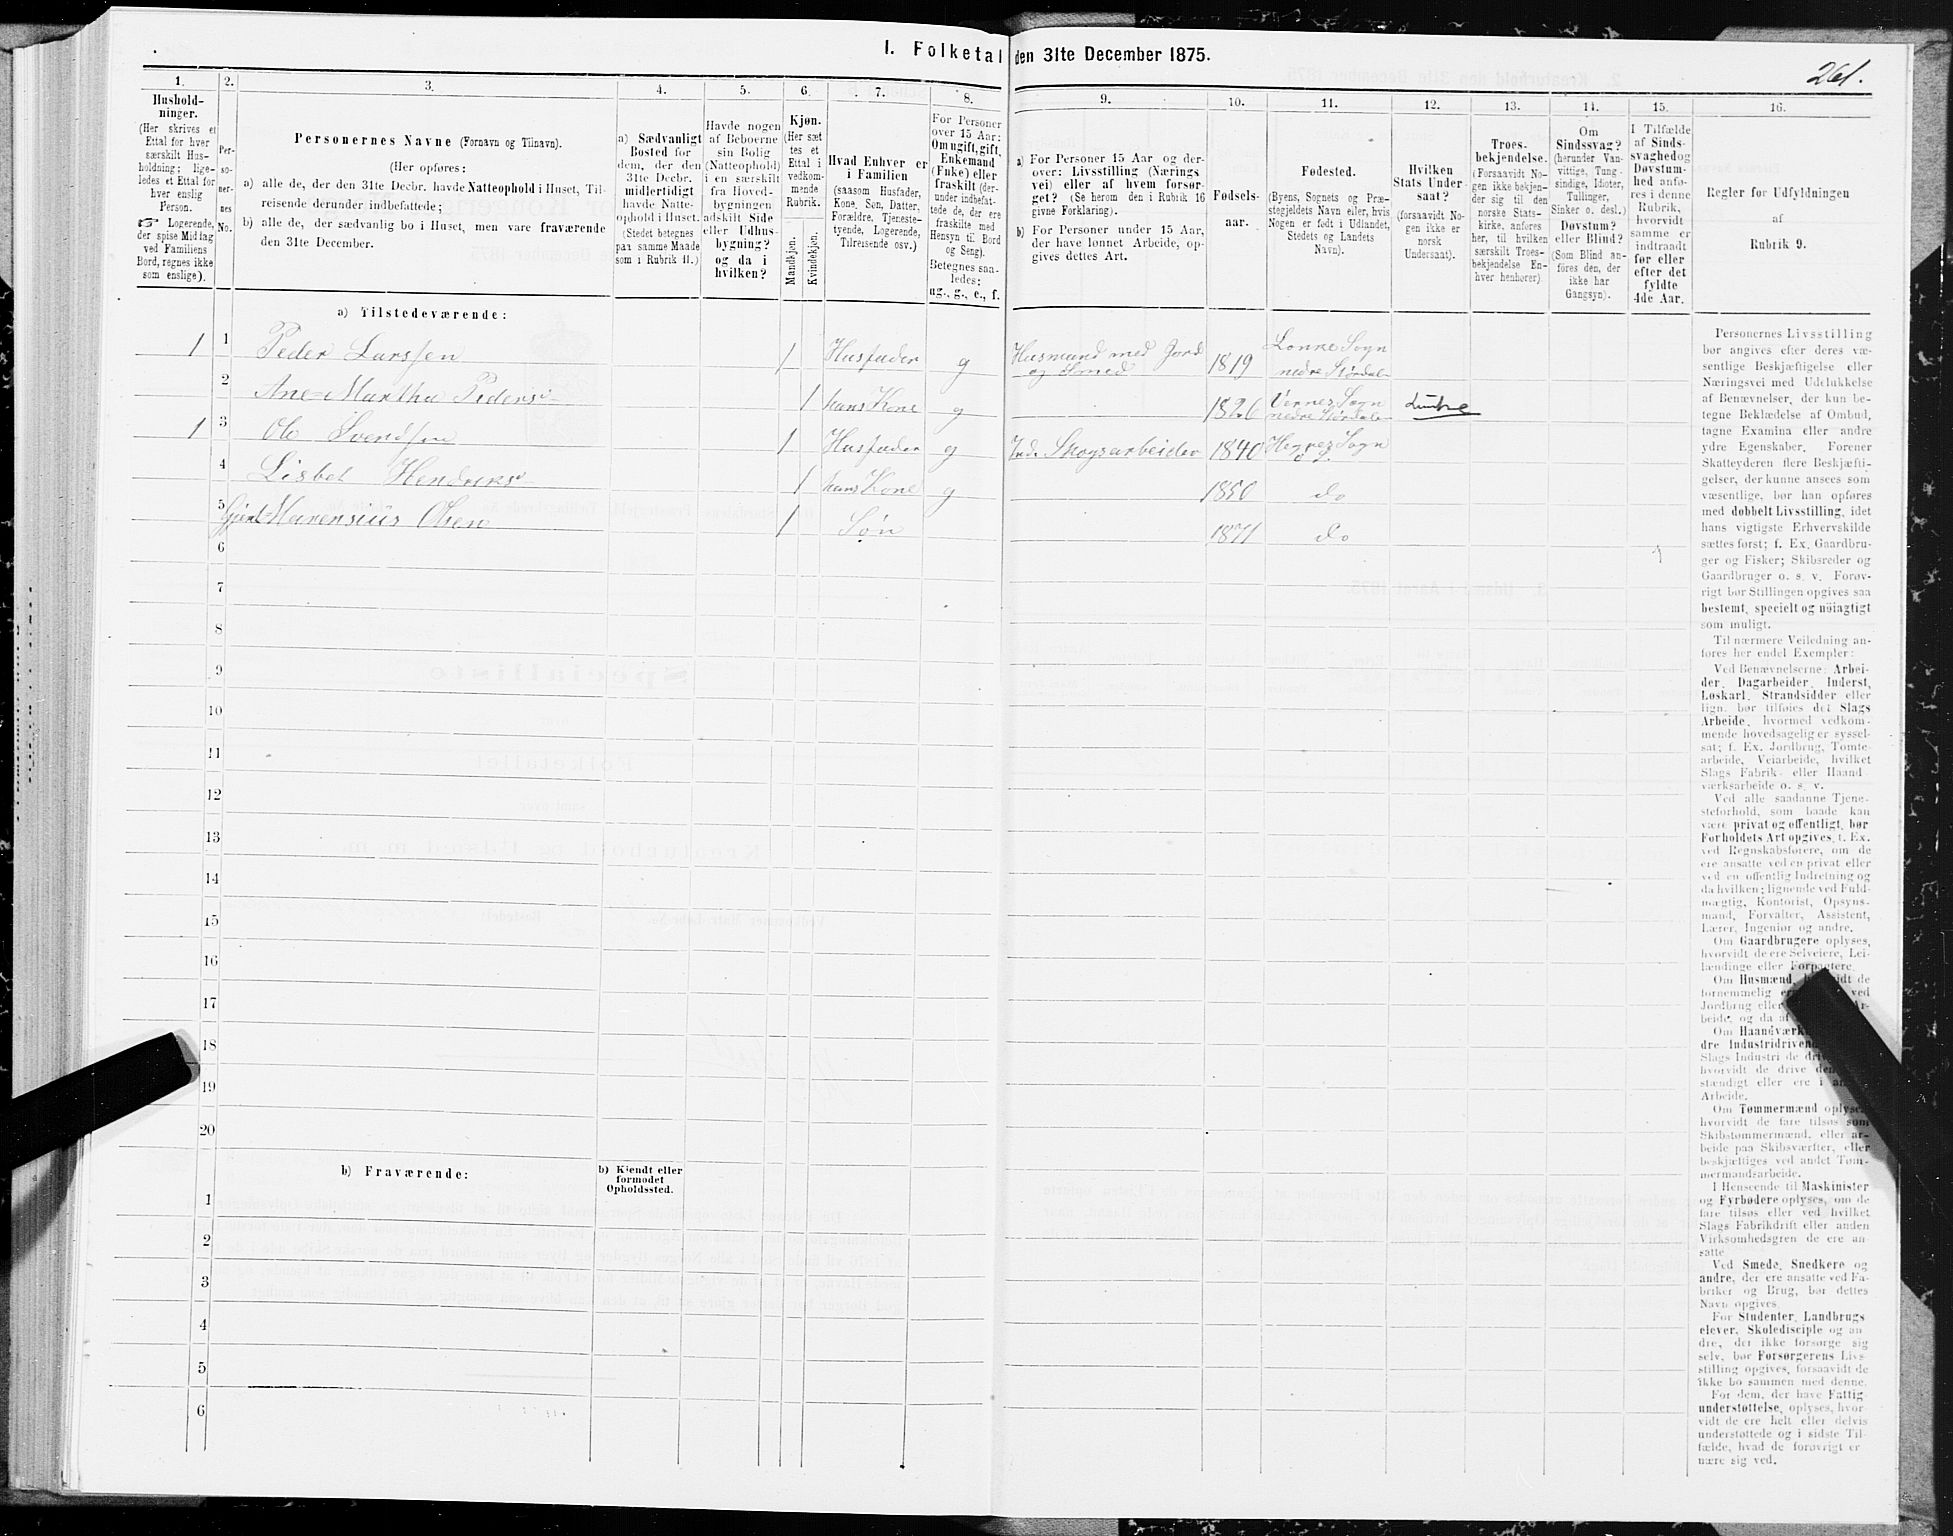 I. Folketal den 31te December 1875.
261.
1.
Hushold-
ninger.
(Her skrives et
Ettal for hver
særskilt Hus-
holdning; lige-
ledes et Ettal for
hver enslig
Person.
☞ Logerende,
der spise Middag
ved Familiens
Bord, regnes ikke
som enslige).
2.
Per-
so-
ner-
nes
No.
3.
Personernes Navne (Fornavn og Tilnavn).
(Her opføres:
a) alle de, der den 31te Decbr. havde Natteophold i Huset, Til-
reisende derunder indbefattede;
b) alle de, der sædvanlig bo i Huset, men vare fraværende
den 31te December.
4.
a) Sædvanligt
Bosted for
dem, der den
31te Decbr.
midlertidigt
havde Natte-
ophold i Huset.
(Stedet betegnes
paa samme Maade
som i Rubrik 11.)
5.
Havde nogen
af Beboerne
sin Bolig
(Natteophold)
i en særskilt
fra Hoved-
bygningen
adskilt Side-
eller Udhus-
bygning?
og da i
hvilken?
6.
Kjøn.
(Her sæt-
tes et
Ettal i
vedkom-
mende
Rubrik.
Mandkjøn.
Kvindekjøn.
7.
Hvad Enhver er
i Familien
(saasom Husfader,
Kone, Søn, Datter,
Forældre, Tjeneste-
tyende, Logerende,
Tilreisende osv.)
8.
For Personer
over 15 Aar:
Om ugift, gift,
Enkemand
(Enke) eller
fraskilt (der-
under indbefat-
tede de, der ere
fraskilte med
Hensyn til Bord
og Seng).
Betegnes saa-
ledes:
ug., g., e., f.
9.
a) For Personer 15 Aar og der-
over: Livsstilling (Nærings-
vei) eller af hvem forsør-
get? (Se herom den i Rubrik 16
givne Forklaring).
b) For Personer under 15 Aar,
der have lønnet Arbeide, op-
gives dettes Art.
10.
Fødsels-
aar.
11.
Fødested.
(Byens, Sognets og Præ-
stegjeldets Navn eller, hvis
Nogen er født i Udlandet,
Stedets og Landets
Navn).
12.
Hvilken
Stats Under-
saat?
(forsaavidt No-
gen ikke er
norsk
Undersaat).
13.
Troes-
bekjendelse.
(Forsaavidt No-
gen ikke bekjen-
der sig til den
norske Stats-
kirke, anføres
her, til hvilken
særskilt Troes-
bekjendelse En-
hver henhører)
14.
Om
Sindssvag?
(herunder Van-
vittige, Tung-
sindige, Idioter,
Tullinger,
Sinker o. desl.)
Døvstum?
eller Blind?
(Som Blind an-
føres den, der
ikke har
Gangsyn).
15.
I Tilfælde
af Sinds-
svaghed og
Døvstum-
hed anfø-
res i denne
Rubrik,
hvorvidt
samme er
indtraadt
før eller
efter det
fyldte
4de Aar.
16.
Regler for Udfyldningen
af
Rubrik 9.
a) Tilstedeværende:
1 1 Peder Larssen 1 Husfader g Husmand med Jord og Smed 1819 Lonke Sogn nedre Størdal
2 Ane-Martha Peders 1 hans Kone g 1826 Vernes Sogn nedre Størdal
1 3 Ole Svendsen 1 Husfader g Ind. Skogsarbeider 1840 Hegres Sogn
4 Lisbet Hendriks 1 hans Kone g 1850 do
5 Marensius Olsen 1 Søn 1871 do
6
7
8
9
10
11
12
13
14
15
16
17
18
19
20
b) Fraværende:
b) Kjendt eller
formodet
Opholdssted.
1
2
3
4
5
6
Personernes Livsstilling
bør angives efter deres væ-
sentlige Beskjæftigelse eller
Næringsvei med Udelukkelse
af Benævnelser, der kun be-
tegne Beklædelse af Ombud,
tagne Examina eller andre
ydre Egenskaber. Forener
Skatteyderen flere Beskjæfti-
gelser, der kunne ansees som
væsentlige, bør han opføres
med dobbelt Livsstilling, idet
hans vigtigste Erhvervskilde
sættes først; f. Ex. Gaardbru-
ger og Fisker; Skibsreder og
Gaardbruger o. s. v. Forøv-
rigt bør Stillingen opgives saa
bestemt, specielt og nøiagtigt
som muligt.
Til nærmere Veiledning an-
føres her endel Exempler:
Ved Benævnelserne: Arbei-
der, Dagarbeider, Inderst,
Løskarl, Strandsidder eller
lign. bør tilføies det Slags
Arbeide, hvormed vedkom-
mende hovedsagelig er syssel-
sat; f. Ex. Jordbrug, Tomte-
arbeide, Veiarbeide, hvilket
Slags Fabrik- eller Haand-
værksarbeide o. s. v.
Ved alle saadanne Tjene-
steforhold, som baade kan
være privat og offentligt, bør
Forholdets Art opgives, f. Ex.
ved Regnskabsførere, om de
ere ansatte ved en privat eller
ved en offentlig Indretning og
da hvilken; lignende ved Fuld-
mægtig, Kontorist, Opsyns-
mand, Forvalter, Assistent,
Lærer, Ingeniør og andre.
Om Gaardbrugere oplyses,
hvorvidt de ere Selveiere, Lei-
lændinge eller Forpagtere.
Om Husmænd, de
fornemmelig ved
Jordbrug eller
beide, og da af
Om
dre Industridrivende
Slags Industri de drive
hvorvidt de drive den
stændigt eller ere i
Arbeide.
Om Tømmermænd oplyses,
hvorvidt de fare tilsøs som
Skibstømmermænd, eller ar-
beide paa Skibsværfter, eller
beskjæftiges ved andet Tøm-
mermandsarbeide.
I Henseende til Maskinister
og Fyrbødere oplyses, om de
fare tilsøs eller ved hvilket
Slags Fabrikdrift eller anden
Virksomhedsgren de ere an-
satte
Ved Smede, Snedkere og
andre, der ere ansatte ved Fa-
briker og Brug, bør dettes
Navn opgives.
For Studenter, Landbrugs-
elever, Skoledisciple og an-
dre, der ikke forsørge sig
selv, bør Forsørgerens Livs-
stilling opgives, forsaavidt de
ikke bo sammen med denne.
For dem, der have Fattig-
understøttelse, oplyses, hvor-
vidt de ere helt eller delvis
understøttede og i sidste Til-
fælde, hvad de forøvrigt er-
nære sig ved.